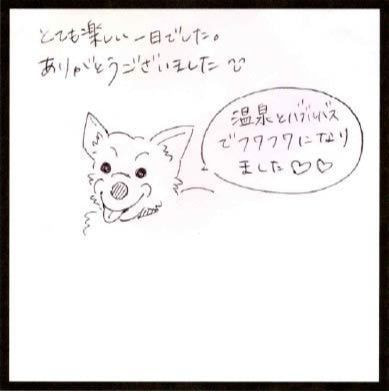 とても楽しい一日でした。
ありがとうございました
温泉とバブルバス
でフワフワになり
ました♡♡